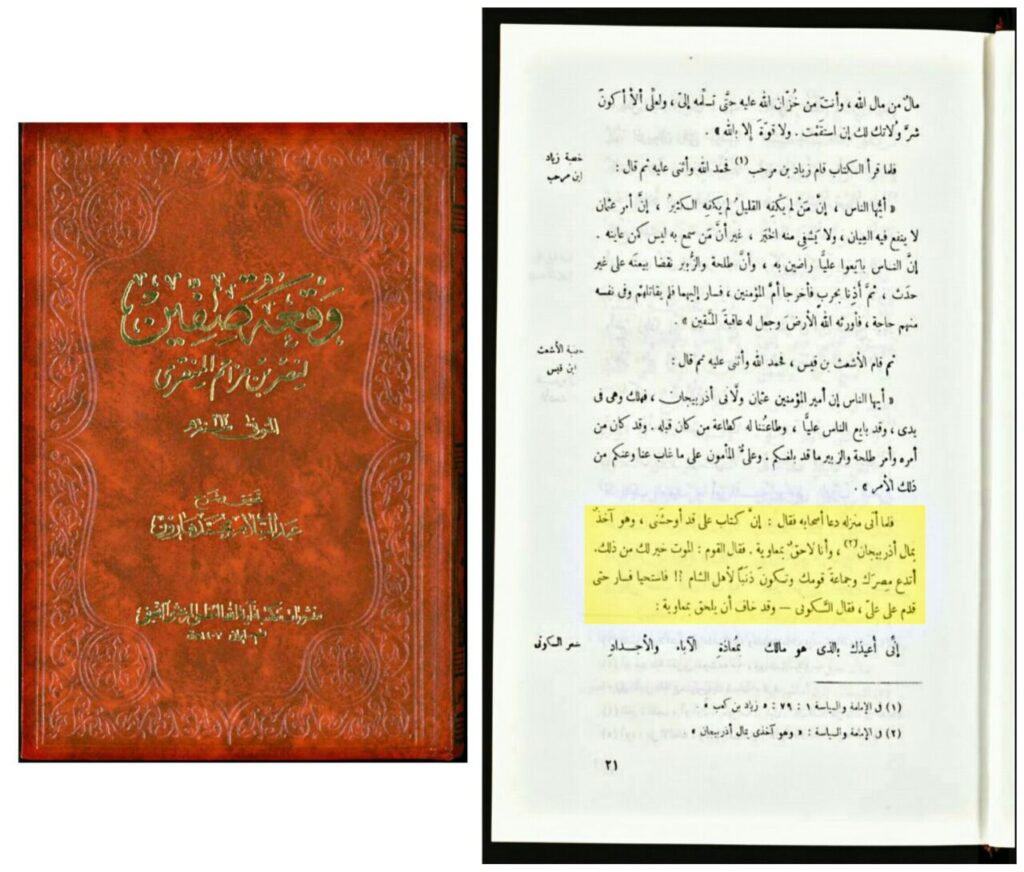 وقعة صفين
لنصر بن مزاحم المنقري
المتوفى سنة ٢١٢
تحقيق وشرح
عبد السلام محمد هارون
مال من مال الله ، وأنت من خُزَّان الله عليه حتَّى تسلِّمه إلىّ ، ولعلِّى ألاّ أكونَ
شرَّ وُلاتك لك إن استقَمْت . ولا قوّةَ إلا بالله » .
خطبة زياد
ابن مرحب
فلما قرأ الكتاب قام زياد بن مرحب (١) فحمد الله وأثنى عليه ثم قال :
« أيُّها الناس ، إنَّ مَنْ لم يكْفِه القليلُ لم يَكفِه الكثيرُ ، إنَّ أمر عثمان
لا ينفع فيه العِيان ، ولا يَشفِى منه الخَبَر ، غير أنَّ مَن سمع به ليس كمن عاينه .
إنَّ النـاس بايَعوا عليًّا راضين به ، وأنَّ طلحة والزُّبير نقضا بيعتَه على غير
حدَث ، ثمَّ أَذِنا بحربٍ فأخرجا أمَّ المؤمنين ، فسار إليهما فلم يقاتلهْم وفى نفسه
منهم حاجة ، فأورثه الله الأرضَ وجعل له عاقبةَ المتَّقين » .
خطبة الأشعث
ابن قيس
ثم قام الأشعث بن قيس ، فحمد الله وأثنى عليه ثم قال :
« أيها الناس إن أمير المؤمنين عثمان ولَّانى أذربيجان ، فهلك وهى فى
يدى ، وقد بايع الناس عليًّا ، وطاعتُنا له كطاعة من كان قبله . وقد كان من
أمره وأمر طلحة والزبير ما قد بلغكم . وعلىٌّ المأمون على ما غاب عنا وعنكم من
ذلك الأمر » .
فلما أتى منزله دعا أصحابه فقال : إنَّ كتاب على قد أوحشَنى ، وهو آخذٌ
بمال أذربيجان(٢) ، وأنا لاحقٌ بمعاوية . فقال القوم : الموت خير لك من ذلك.
أتدع مِصرَك وجماعةَ قومك وتـكونَ ذنَباً لأهل الشام ؟! فاستحيا فسار حتى
قدم على علىّ ، فقال السَّكونى — وقد خاف أن يلحق بمعاوية :
شعر السكونى
إنى أعيذك بالذى هو مالك بمعاذةِ الآباء والأجـدادِ
(١) فى الإمامة والسياسة ١ : ٧٩ : « زياد بن كعب » .
(٢) فى الإمامة والسياسة : « وهو آخذى بمال أذربيجان »
٢١